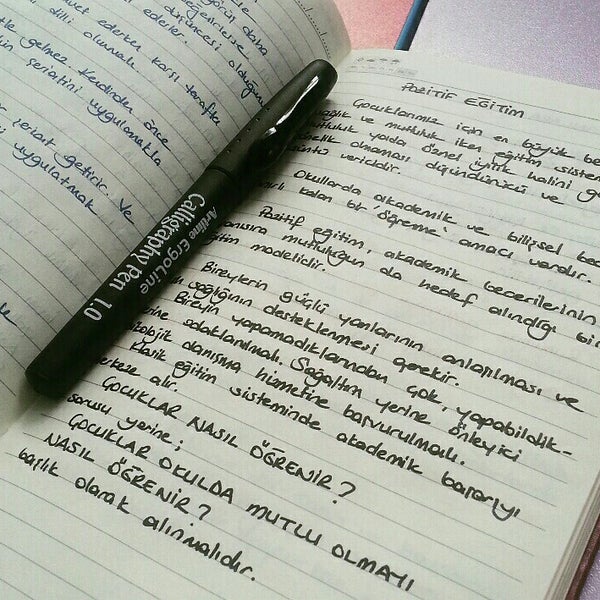 görün daha
beğenirlerse
düşüncesi
vet ederken karşı tarafta olduğun
dilli olunmalı ederler.
te gelmez. Kendinden önce
şeriatini uygulamakla
şeriat getirir. Ve
uygulatmak
Artline ErgoLine
Calligraphy Pen 1.0
POZİTİF EĞİTİM
Çocuklarımız için en büyük be
sağlık ve mutluluk iken eğitim sistem
mutluluk yada öznel iyilik halini g
nelik olmaması düşündürücü ve
üntü vericidir.
Okullarda akademik ve bilişsel bec
kalan bir "öğreme" amacı vardır.
Pozitif eğitim, akademik becerilerinin
yanısıra mutluluğun da hedef alındığı bir
eğitim modelidir.
Bireylerin güçlü yanlarının anlaşılması ve
sağlığının desteklenmesi gerekir.
Bireyin yapamadıklarından çok, yapabildik-
lerine odaklanılmalı. Sağaltım yerine önleyici
psikolojik danışma hizmetine başvurulmalı.
Klasik eğitim sisteminde akademik başarıyı
merkeze alır.
ÇOCUKLAR NASIL ÖĞRENİR?
sorusu yerine;
ÇOCUKLAR OKULDA MUTLU OLMAYI
NASIL ÖĞRENİR?
başlık olarak alınmalıdır.